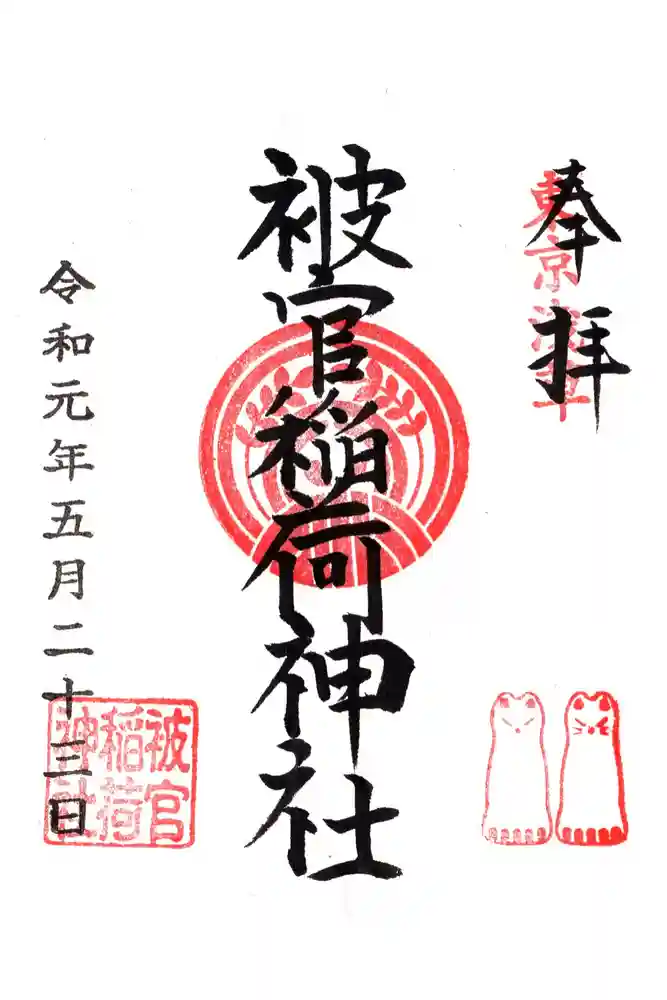 奉拝
東京浅草
被官稲荷神社
令和元年五月二十三日
被官
稲荷
神社